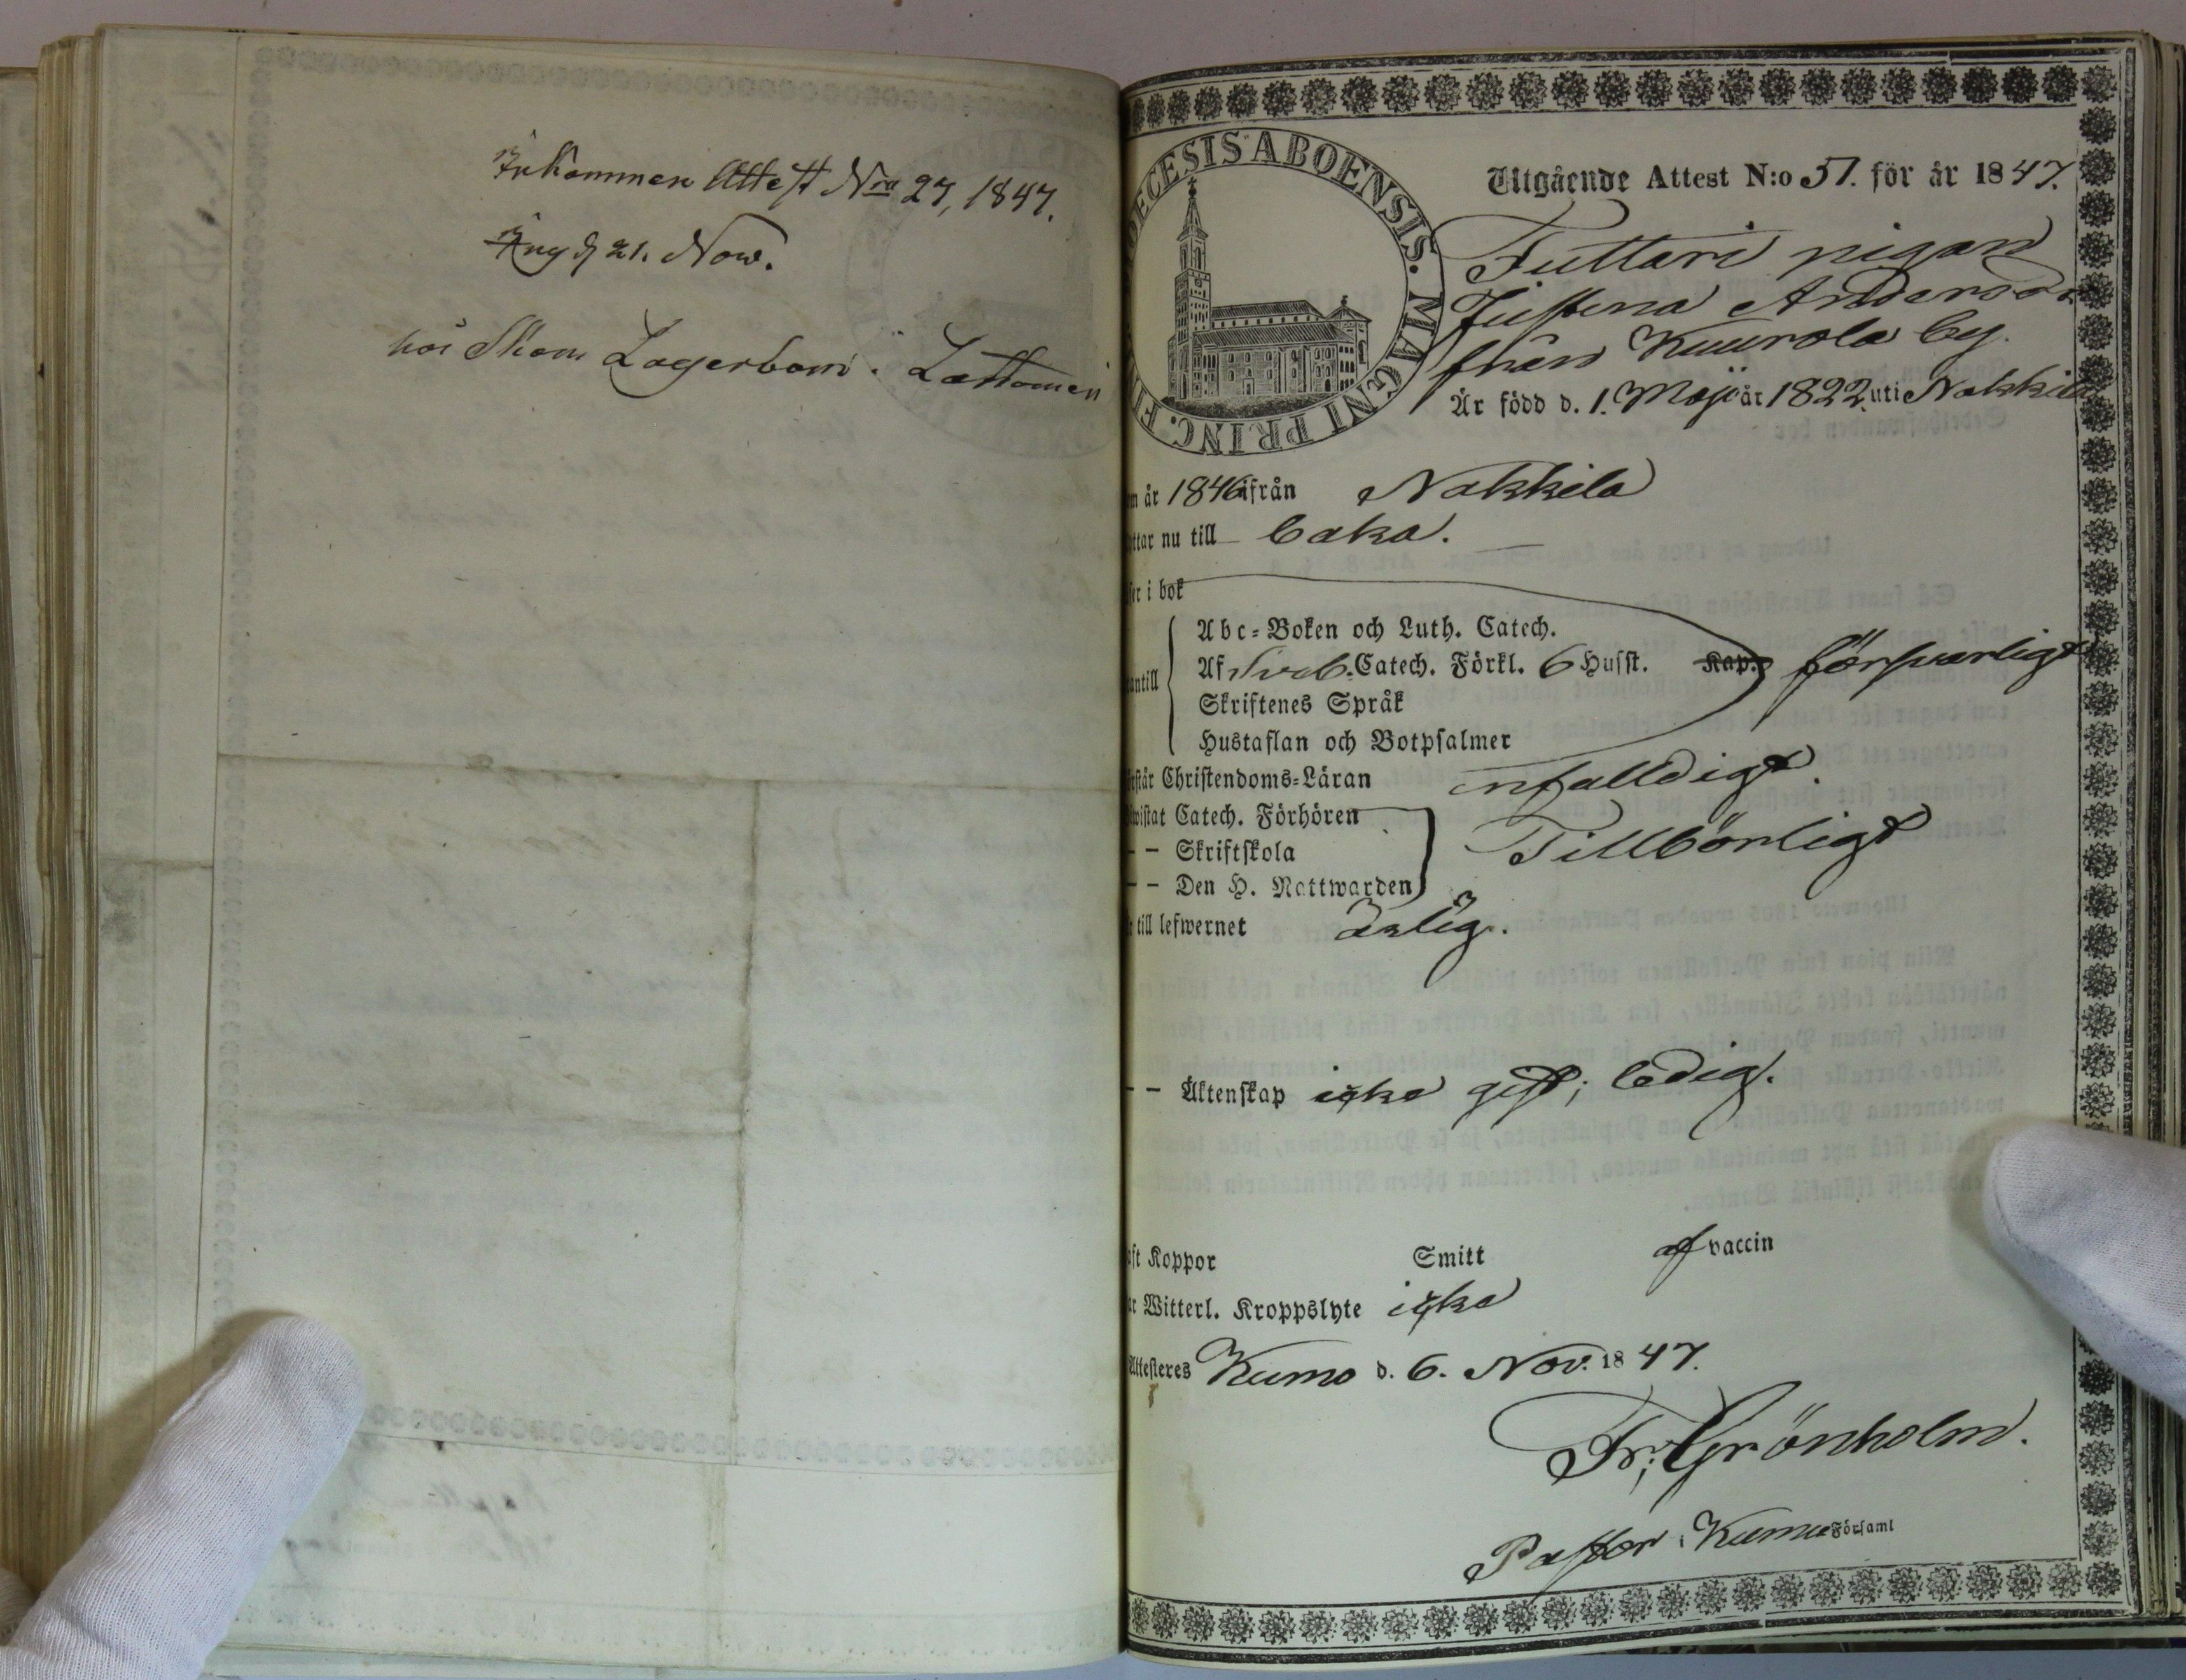 Inkommen Attest Nro 27, 1847.
d 21. Nov.
hos Skom Lagerbom i Lattomeri
DIOECESIS ABOENSIS. MAGNI PRINC. FI
Utgående Attest N:o 51. för år 1847.
Juttari pigan
Justina Andersdr
från Kuurola by.
Är född d. 1. Maji år 1822 uti Nakkila
m år 1846 ifrån Nakkila
ttar nu till Eaka.
ser i bok
Abc-Boken och Luth. Catech.
antill Af Sveb. Catech. Förkl. 6 Husst. Kap. försvarligt
Skriftenes Språk
Hustaflan och Botpsalmer
rstår Christendoms-Läran enfalldigt.
wistat Catech. Förhören
– – Skriftskola Tillbörligt
– – Den H. Nattwarden
till lefwernet ärlig.
– – Äktenskap icke gift; ledig.
ft Koppor Smitt af vaccin
ar Witterl. Kroppslyte icke
Attesteres Kumo d. 6. Nov. 1847.
Fr: Grönholm.
Pastor i Kumo Församl